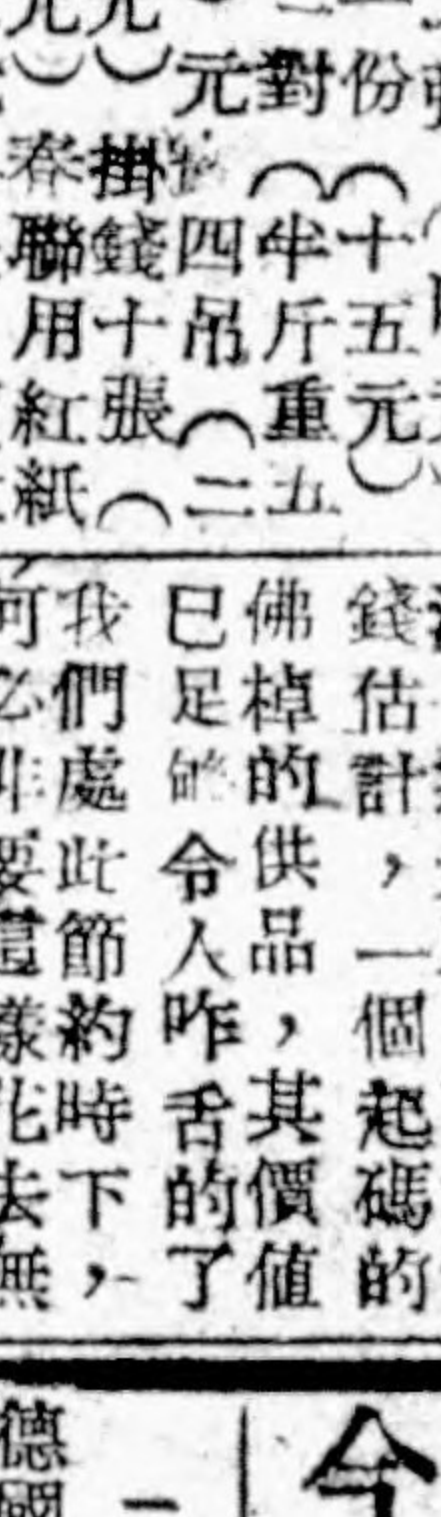 份（十五元）
對（半斤重五
元）
四吊（二
元）掛錢十張（
元）春聯用紅紙
錢估計，一個起碼的
佛棹的供品，其價値
已足够令人咋舌的了
我們處此節約時下，
何必非要這樣花去無
今
一
德國